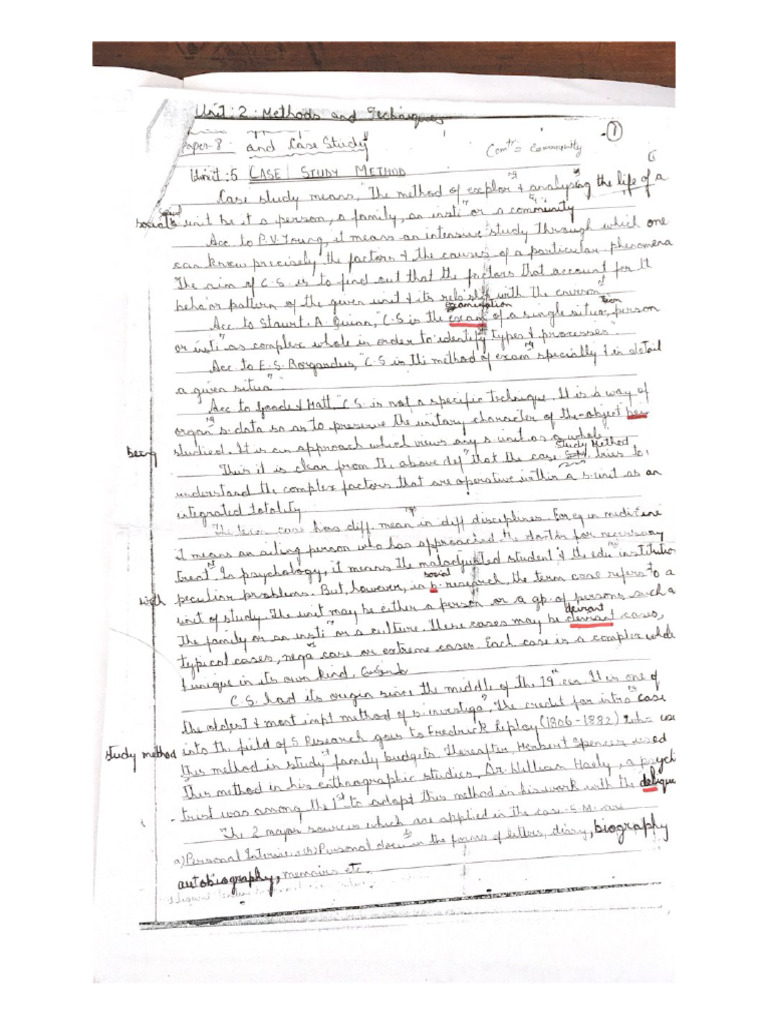 Unit: 2 Methods and Techniques
Paper-8 and Case Study
Com^ty = Community
1
Unit: 5 CASE STUDY METHOD
Case study means, "The method of explor^g & analysing the life of a
social unit be it a person, a family, an insti^n or a community
Acc to P.V. Young, it means an intensive study through which one
can know precisely the factors & the causes of a particular phenomena
The aim of C.S. is to find out that the factors that account for th
behavior pattern of the given unit & its relo'ship with the environ
examination tion
Acc to Stuart A. Quinn, "C-S is the exam of a single situa, person
or insti^n as complex whole in order to identify types & processes".
Acc to E.S. Borgardus, "C S is the method of exam^g specially & in detail
a given situa^n
Acc to Goode & Hatt, C.S. is not a specific technique. It is a way of
organ^g s. data so as to preserve the unitary character of the object
being studied. It is an approach which views any s unit as a whole
Study Method
Thus it is clear from the above def^n that the case tries to
understand the complex factors that are operative within a s. unit as an
integrated totality
The term case has diff. mean^g in diff disciplines. For eg in medicine
it means an ailing person who has approached the doctor for necessary
treat^nt. In psychology, it means the maladjusted student & the edu institution
social
with peculiar problems. But, however, in p. research, the term case refers to a
unit of study. The unit may be either a person or a gp. of persons such a
deviant
The family or an insti^n or a culture. These cases may be cases,
typical cases, nega^ve case or extreme cases. Each case is a complex whole
& unique in its own kind.
C.S. had its origin since the middle of the 19^th cen. It is one of
the oldest & most impt method of s investiga^n, The credit for intro^g case
study method into the field of S. Research goes to Fredrick Leplay (1806-1882) who use
this method in study^g family budgets. Thereafter, Herbert Spencer used
This method in his enthnographic studies, Dr. William Healy, a psychi
trist was among the 1^st to adopt this method in his work with the delique
The 2 major sources which are applied in the case S.M. are
a) Personal Interview (b) Personal docu^ts in the forms of letters, diary, biography
autobiography, memoirs etc.